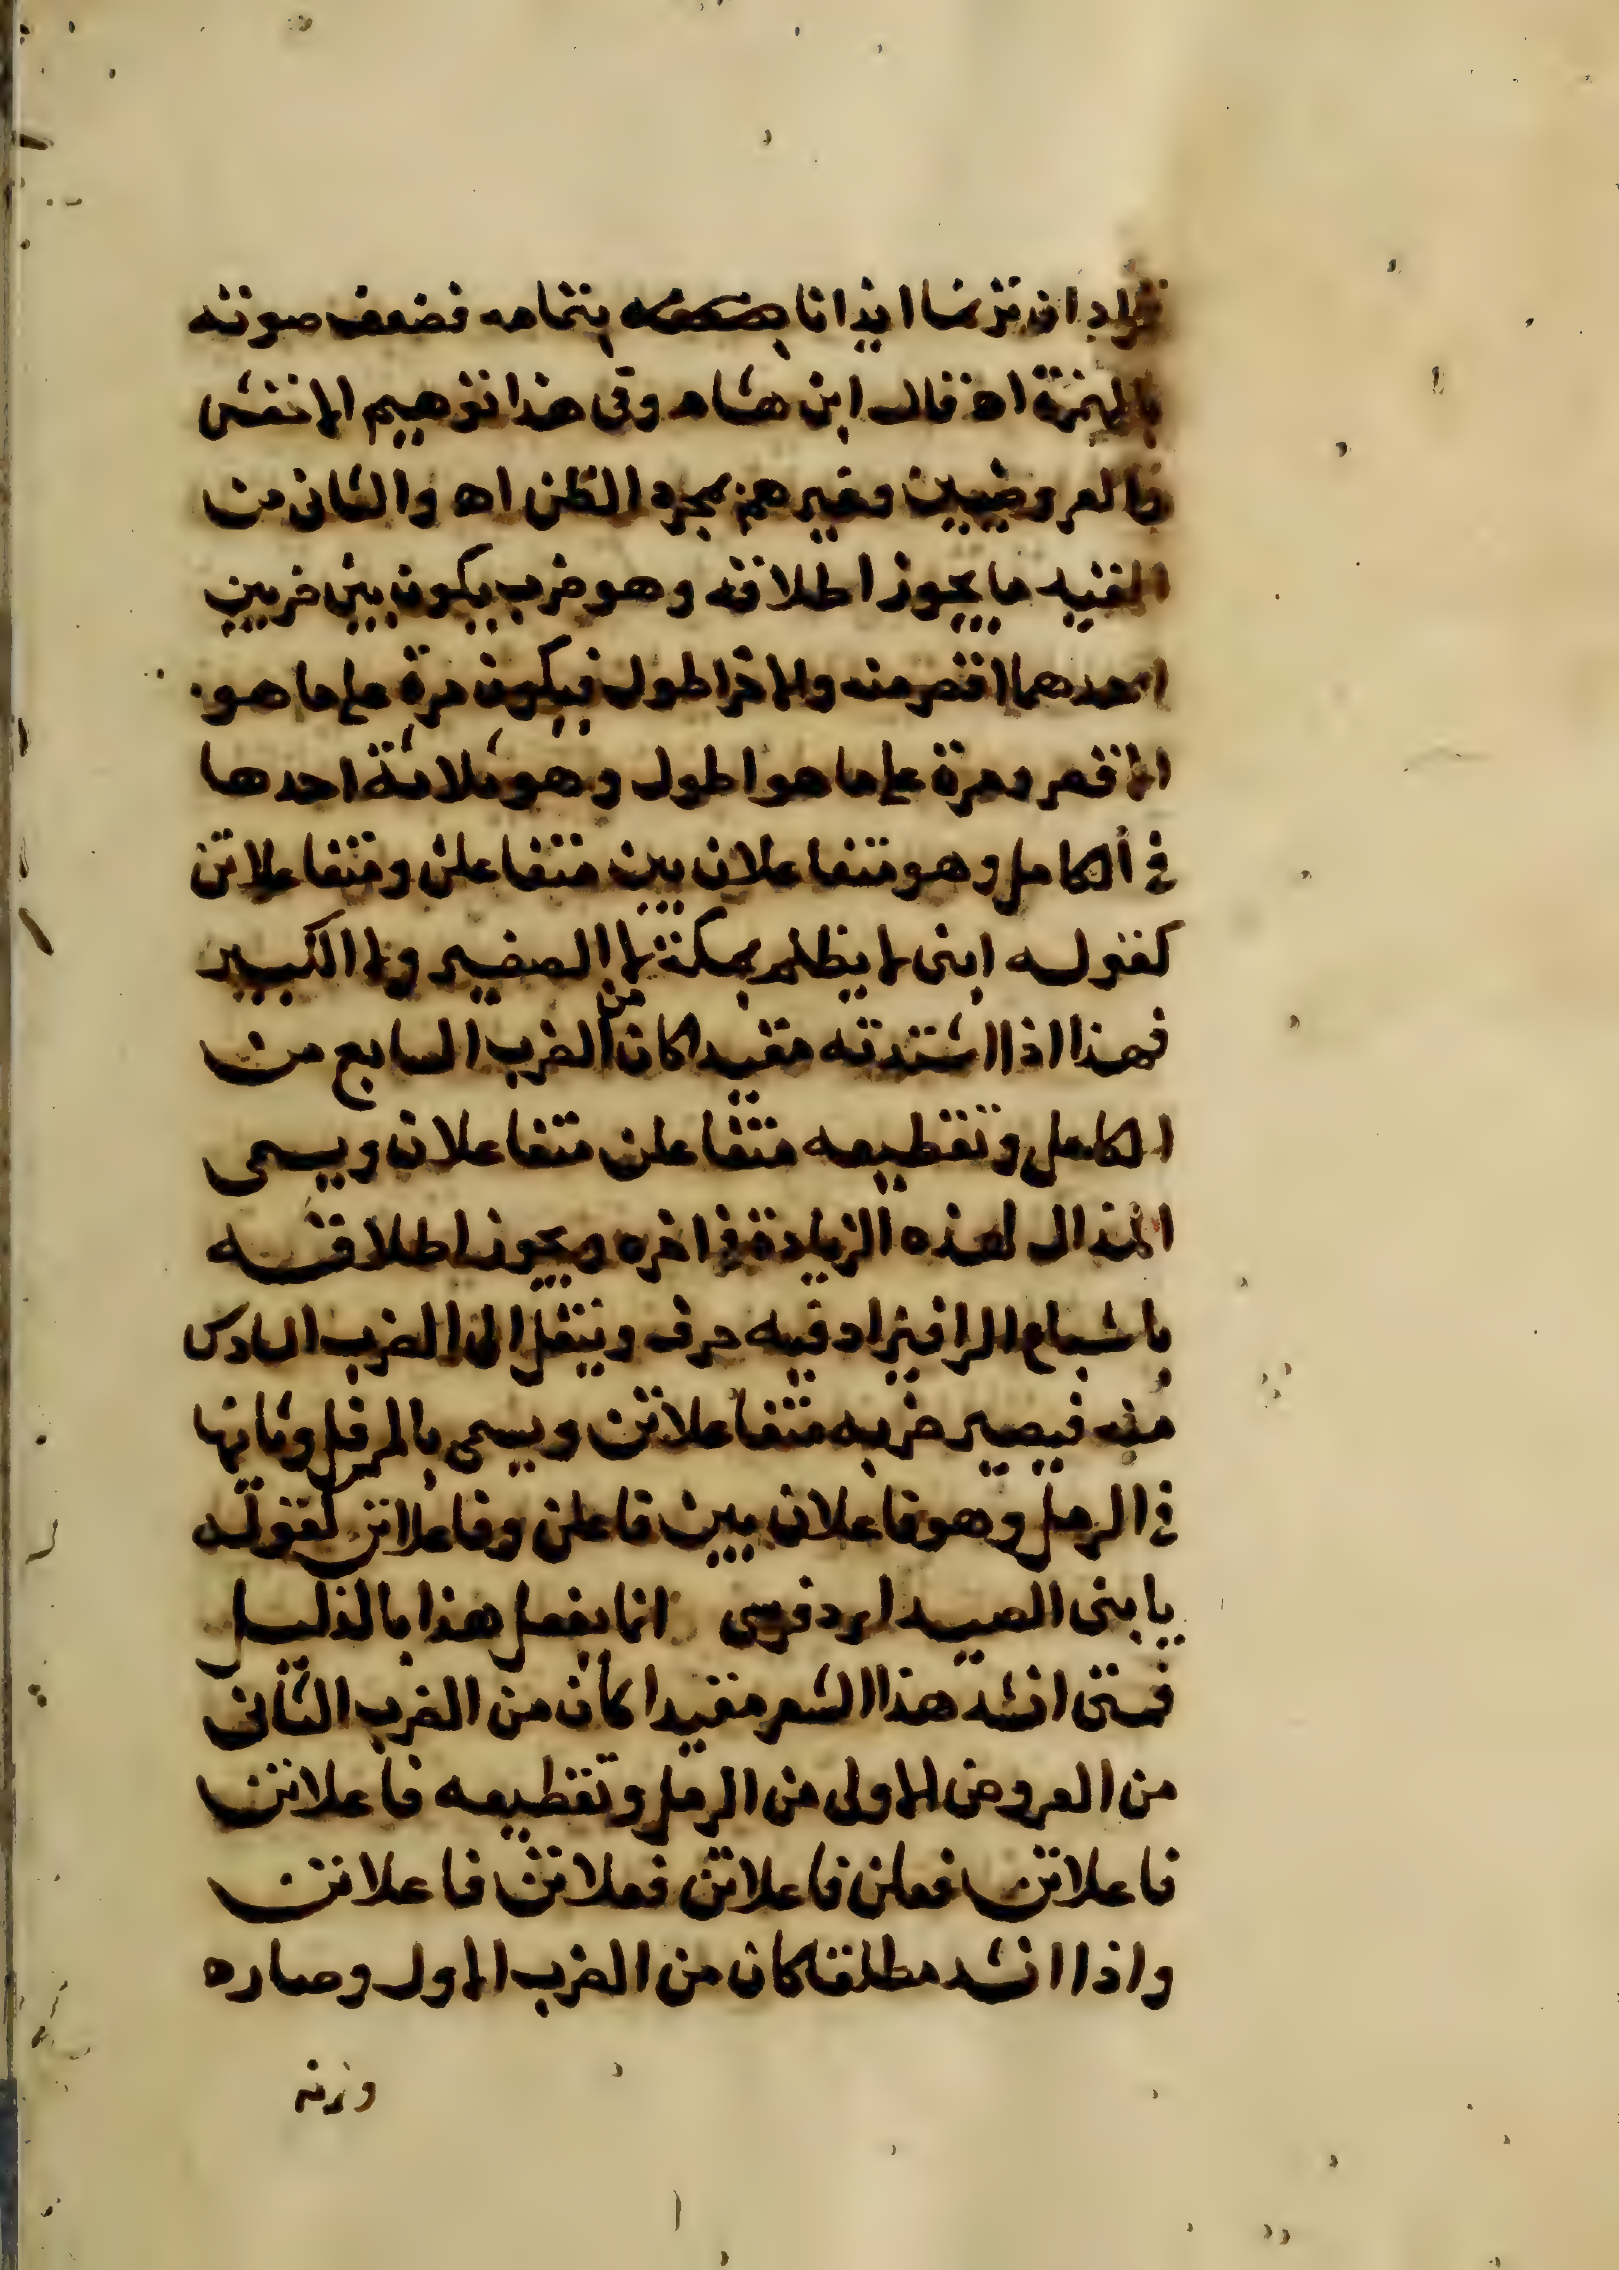 فزاد ان ترنما ايذانا بتمامه فضعف صوته
بالهمزة اه قال ابن هشام وفي هذا توهيم الاخفش
والعروضيين وغيرهم بمجرد الظن اه والثاني من
المقيد ما يجوز اطلاقه وهو ضرب يكون بين ضربين
احدهما اقصر منه والاخر اطول فيكون مرة على ما هو
اقصر ومرة على ما هو اطول وهو ثلاثة احدها
في الكامل وهو متفاعلان بين متفاعلن ومتفاعلاتن
كقوله ابنى لا يظلم بمكة لا الصغير ولا الكبير
فهذا اذا انشدته مقيدا كان من الضرب السابع من
الكامل وتقطيعه متفاعلن متفاعلان ويسمى
المذال لهذه الزيادة في اخره ويجوز اطلاقه
باشباع الرا فيزاد فيه حرف وينتقل الى الضرب السادس
منه فيصير ضربه متفاعلاتن ويسمى بالمرفل وثانيها
في الرمل وهو فاعلان بين فاعلن وفاعلاتن كقوله
يا بنى الصيد ردوا فرسي انما يفعل هذا بالذليل
فمتى انشد هذا الشعر مقيدا كان من الضرب الثاني
من العروض الاولى من الرمل وتقطيعه فاعلاتن
فاعلاتن فعلن فاعلاتن فعلاتن فاعلاتن
واذا انشد مطلقا كان من الضرب الاول وصاره
وزنه